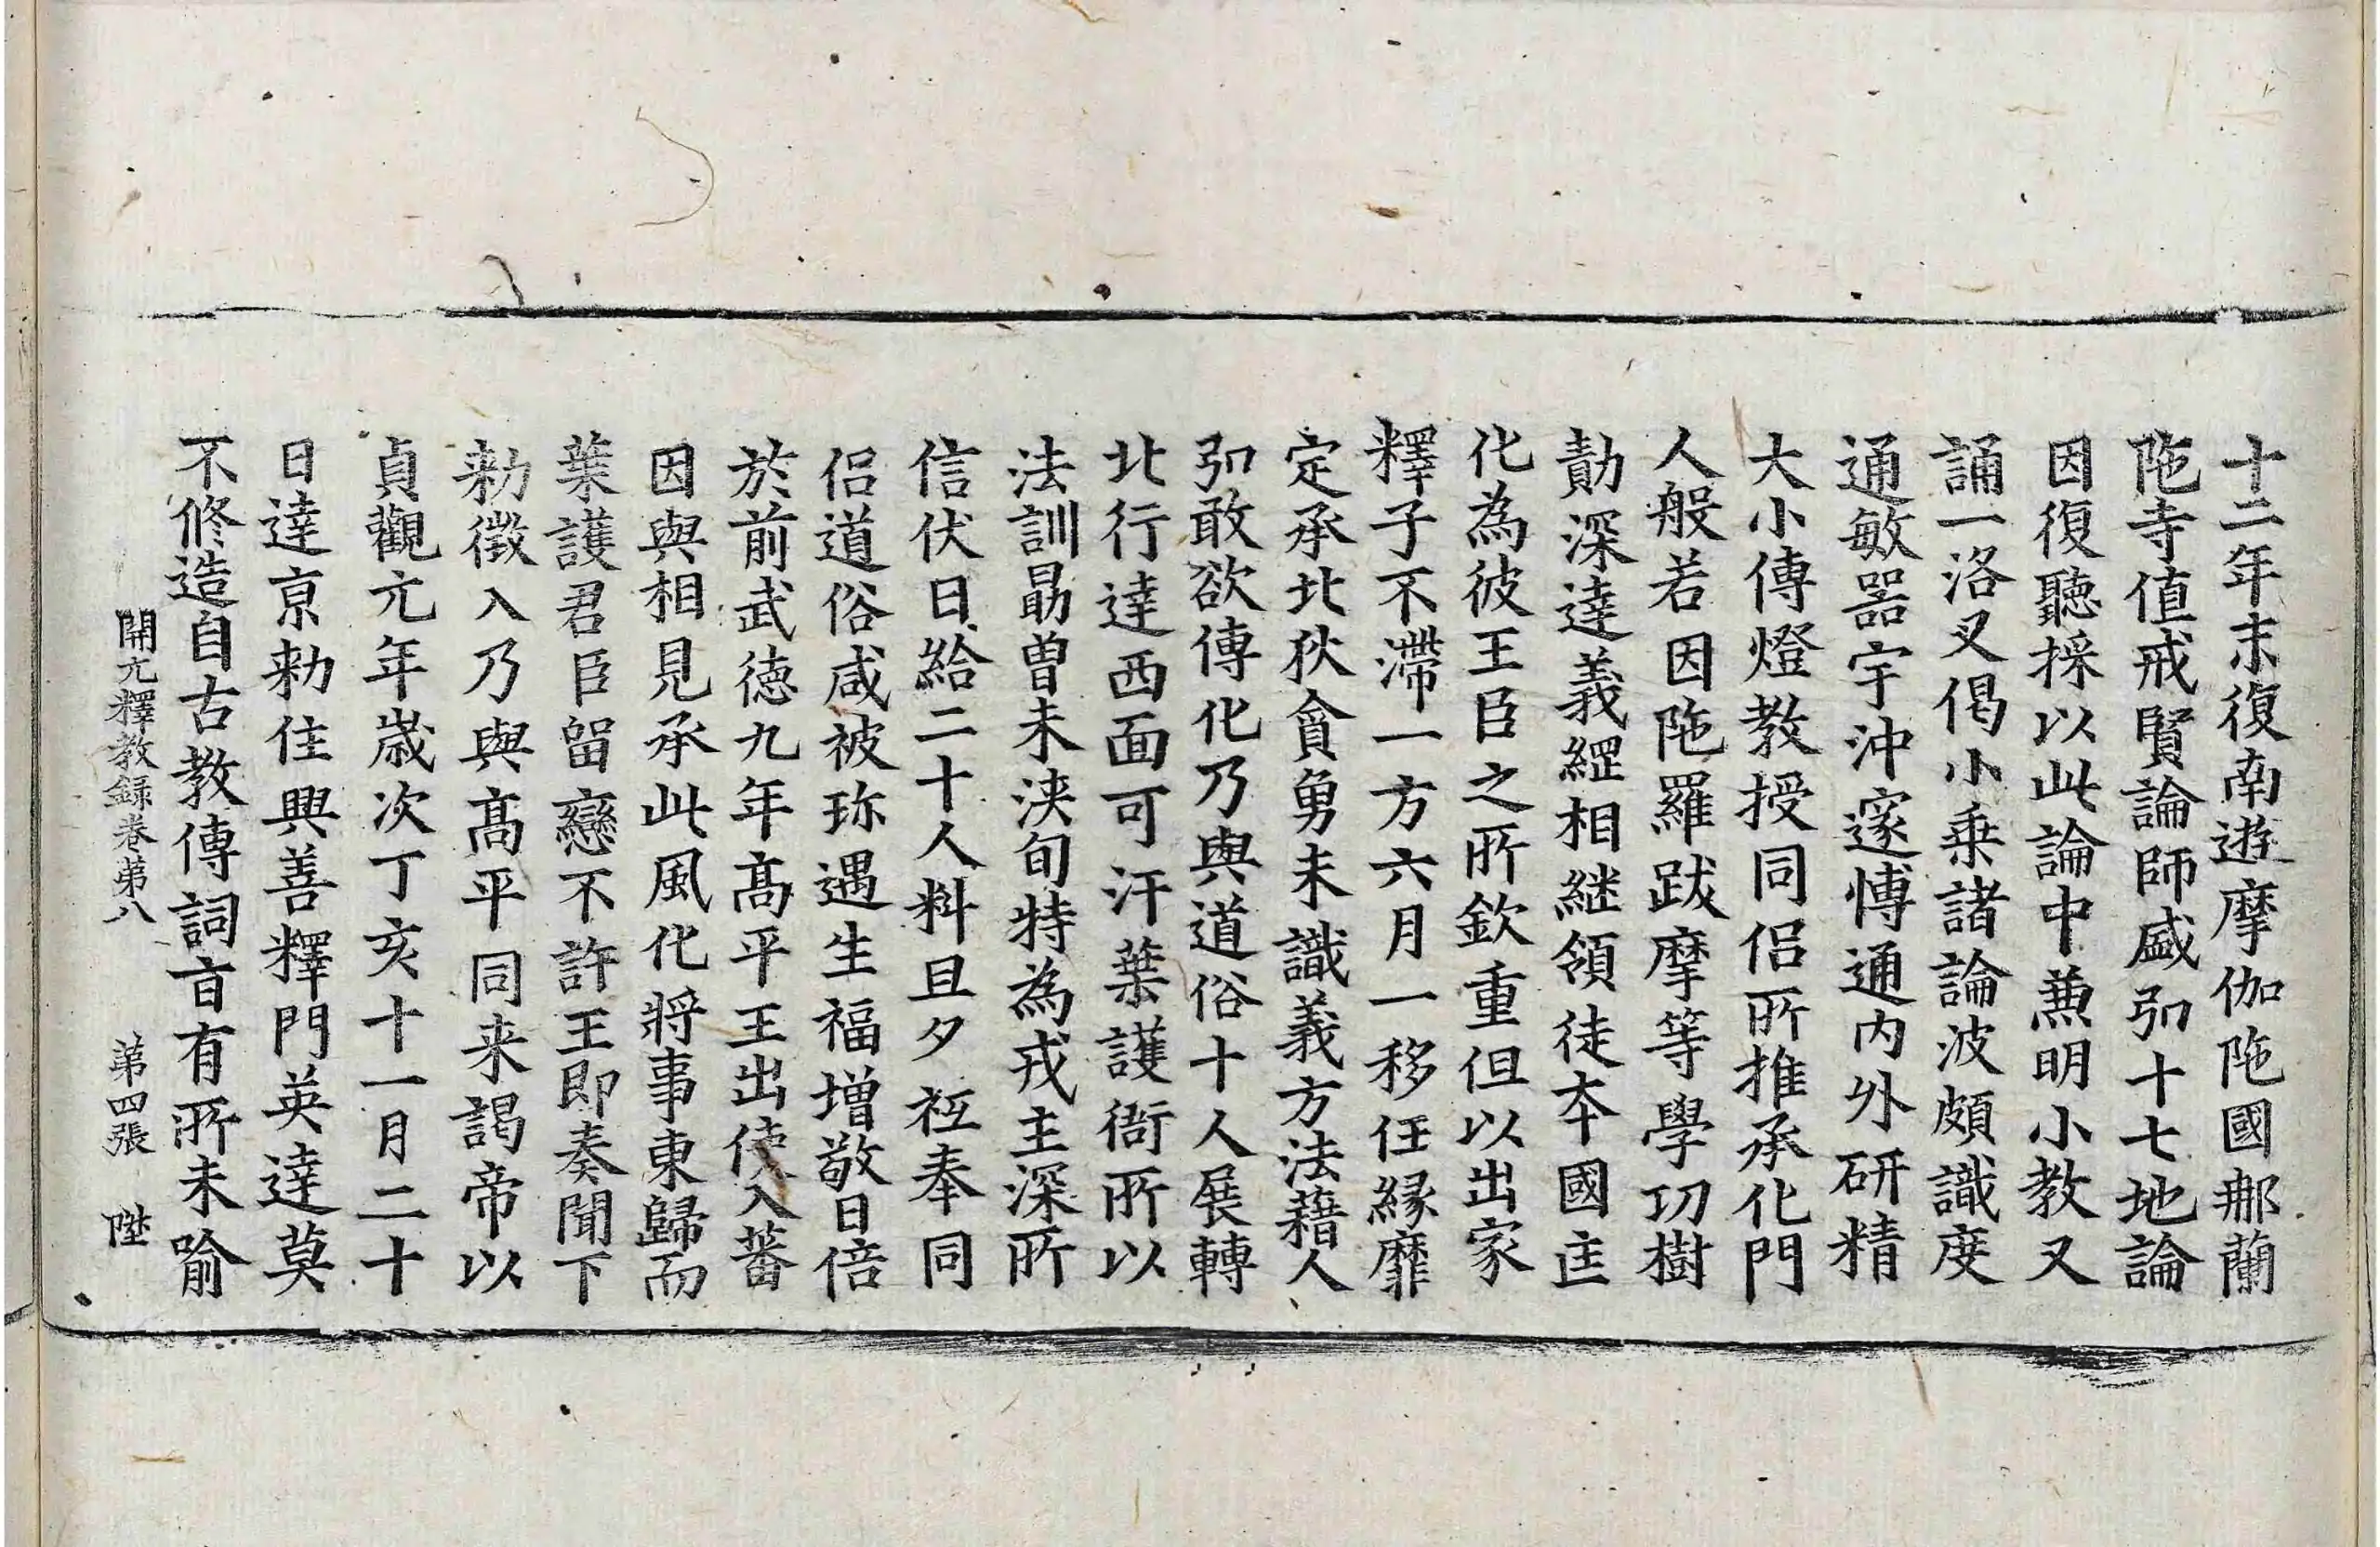 十二年末復南遊摩伽陁國那蘭
陁寺值戒賢論師盛弘十七地論
因復聽採以此論中兼明小教又
誦一洛叉偈小乗諸論波頗識度
通敏器宇沖邃愽通内外研精
大小傳燈教授同侣所推承化門
人般若因陁羅跋摩等學功樹
勣深達義綱相継領徒本國匡
化為彼王臣之所欽重但以出家
釋子不滯一方六月一移任緣靡
定承北狄貪勇未識義方法藉人
弘敢欲傳化乃與道俗十人展轉
北行達西面可汗葉護衙所以
法訓勗曽未浹旬特為戎主深所
信伏日給二十人料旦夕祗奉同
侣道俗咸被珎遇生福增敬日倍
於前武德九年髙平王出使入蕃
因與相見承此風化將事東歸而
葉護君臣留戀不許王即奏聞下
勑徵入乃與髙平同来謁帝以
貞觀元年歳次丁亥十一月二十
日達京勑住興善釋門英達莫
不修造自古教傳詞旨有所未喻
開元釋教録卷第八 第四張 陞